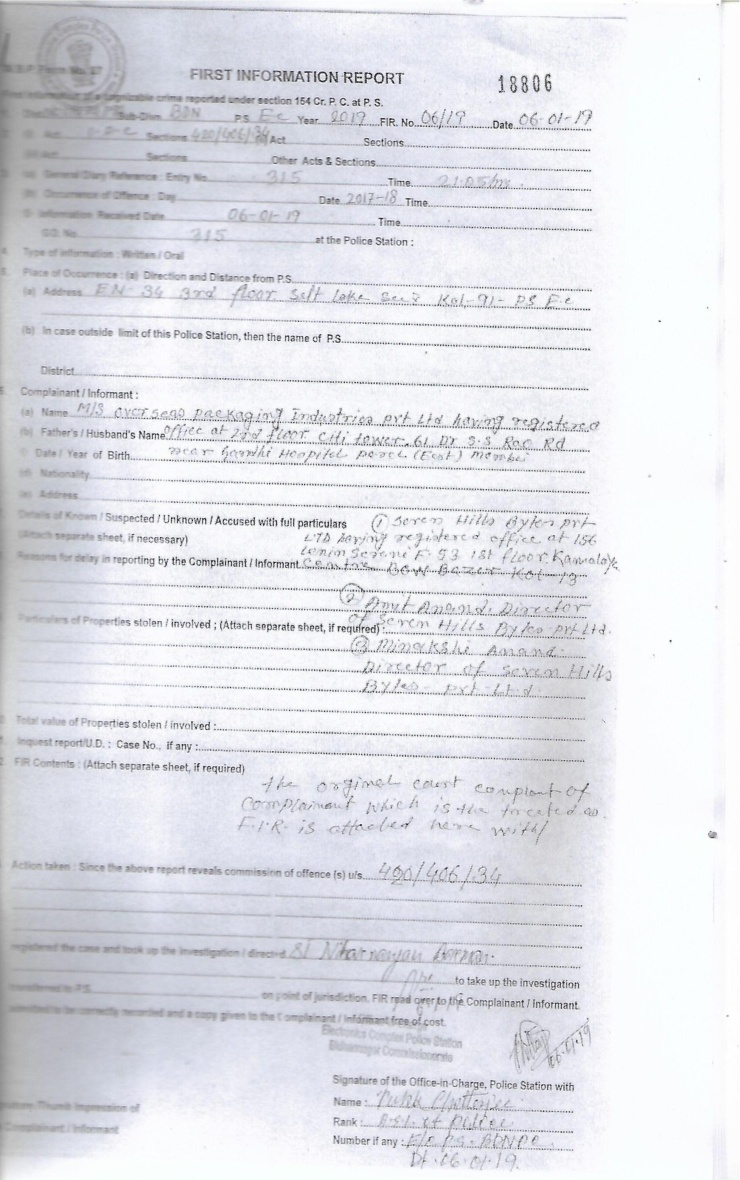 FIRST INFORMATION REPORT
18806
cognizable crime reported under section 154 Cr. P. C. at P. S.
Sub-Divn BDN P.S. E.c Year 2019 FIR. No. 06/19 Date 06-01-19
Act P.c Sections 420/406/34 Act Sections
Sections Other Acts & Sections
General Diary Reference : Entry No. 315 Time 21.05 hrs.
Occurrence of Offence : Day Date 2017-18 Time.
Information Received Date 06-01-19 Time
G.D. No. 315 at the Police Station :
Type of information : Written / Oral
Place of Occurrence : (a) Direction and Distance from P.S.
(a) Address EN-34 3rd floor Salt Lake Kol-91- PS E.c
(b) In case outside limit of this Police Station, then the name of P.S
District
Complainant / Informant :
(a) Name M/S overseas packaging Industries pvt Ltd having registered
(b) Father's / Husband's Name office at 2nd floor Citi tower. 61 Dr S.S Rao Rd
Date / Year of Birth near Gandhi Hospital (East)
(d) Nationality
(e) Address
Details of Known / Suspected / Unknown / Accused with full particulars ① Seven Hills Bytes pvt
(Attach separate sheet, if necessary) LTD having registered office at 156
Lenin F-53 1st floor Kamalaya
Reasons for delay in reporting by the Complainant / Informant Centre Bow Bazer Kol-13
② Amit Anand. Director
of Seven Hills Bytes pvt Ltd.
Particulars of Properties stolen / involved ; (Attach separate sheet, if required) :
③ Minakshi Anand.
Director of Seven Hills
Bytes pvt Ltd.
Total value of Properties stolen / involved :
Inquest report/U.D. : Case No., if any :
FIR Contents : (Attach separate sheet, if required)
the orginal court complant of
Complainent which is the treated as
F.I.R. is attached here with/
Action taken : Since the above report reveals commission of offence (s) u/s. 420/406/34
registered the case and took up the investigation / directed SI
to take up the investigation
transferred to P.S. on point of jurisdiction. FIR read over to the Complainant / Informant.
admitted to be correctly recorded and a copy given to the Complainant / Informant free of cost.
Electronics Complex Police Station
Bidhannagar Commissionerate
06-01-19
Signature of the Office-in-Charge, Police Station with
Name : Chatterjee
Rank : of police
Number if any : E/c P.S. BDNPC
Dt. 06.01.19.
Signature Thumb Impression of
Complainant / Informant